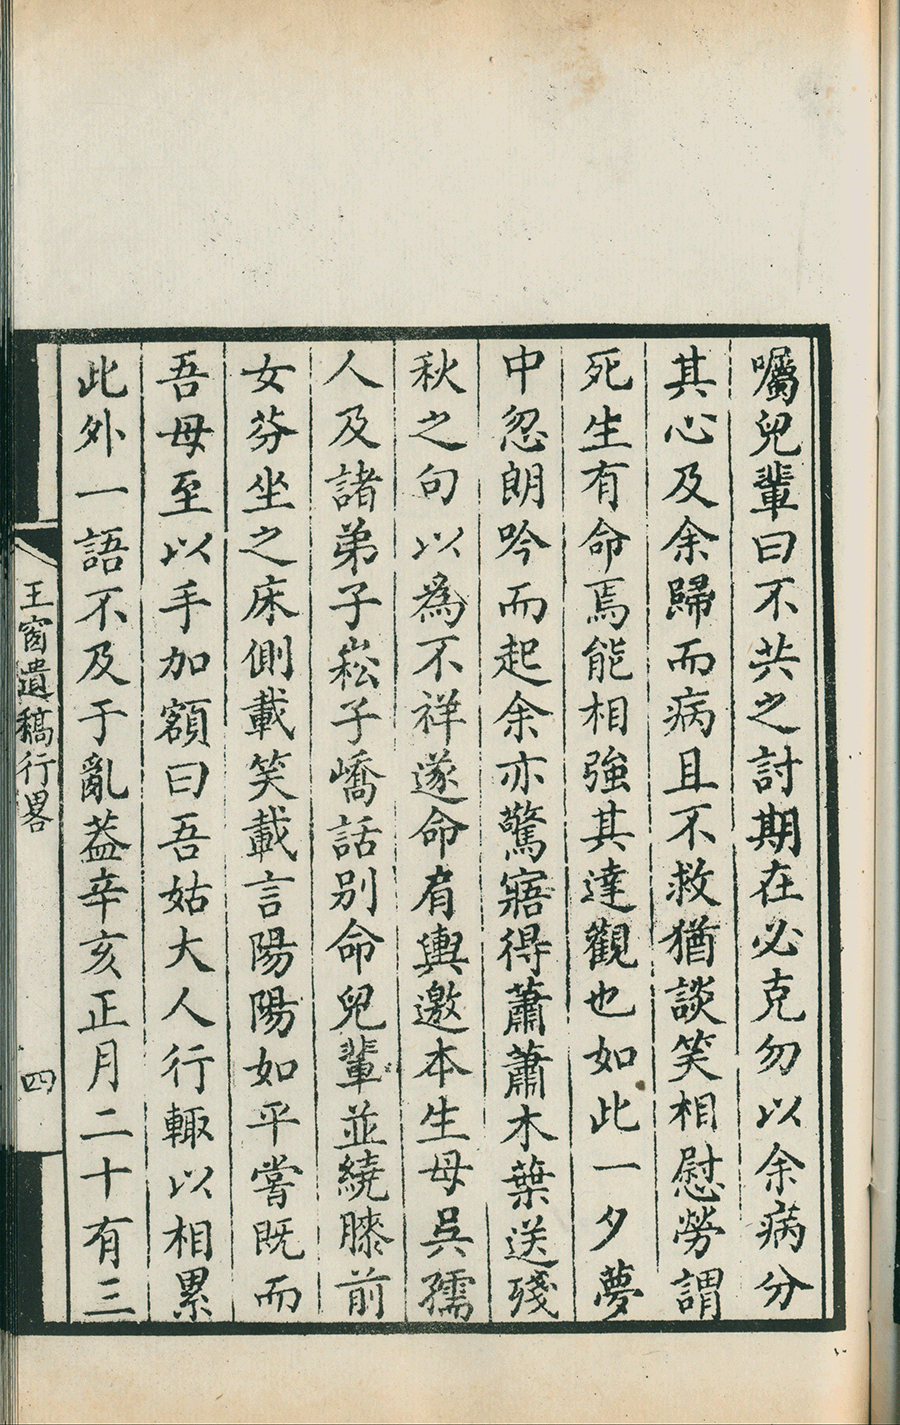 囑兒輩曰不共之討期在必克勿以余病分
其心及余歸而病且不救猶談笑相慰勞謂
死生有命焉能相強其達觀也如此一夕夢
中忽朗吟而起余亦驚寤得蕭蕭木葉送殘
秋之句以為不祥遂命肩輿邀本生母吳孺
人及諸弟子崧子嶠話别命兒輩並繞膝前
女芬坐之床側載笑載言陽陽如平嘗既而
吾母至以手加額曰吾姑大人行輙以相累
此外一語不及于亂葢辛亥正月二十有三
王窗遺稿行畧
四